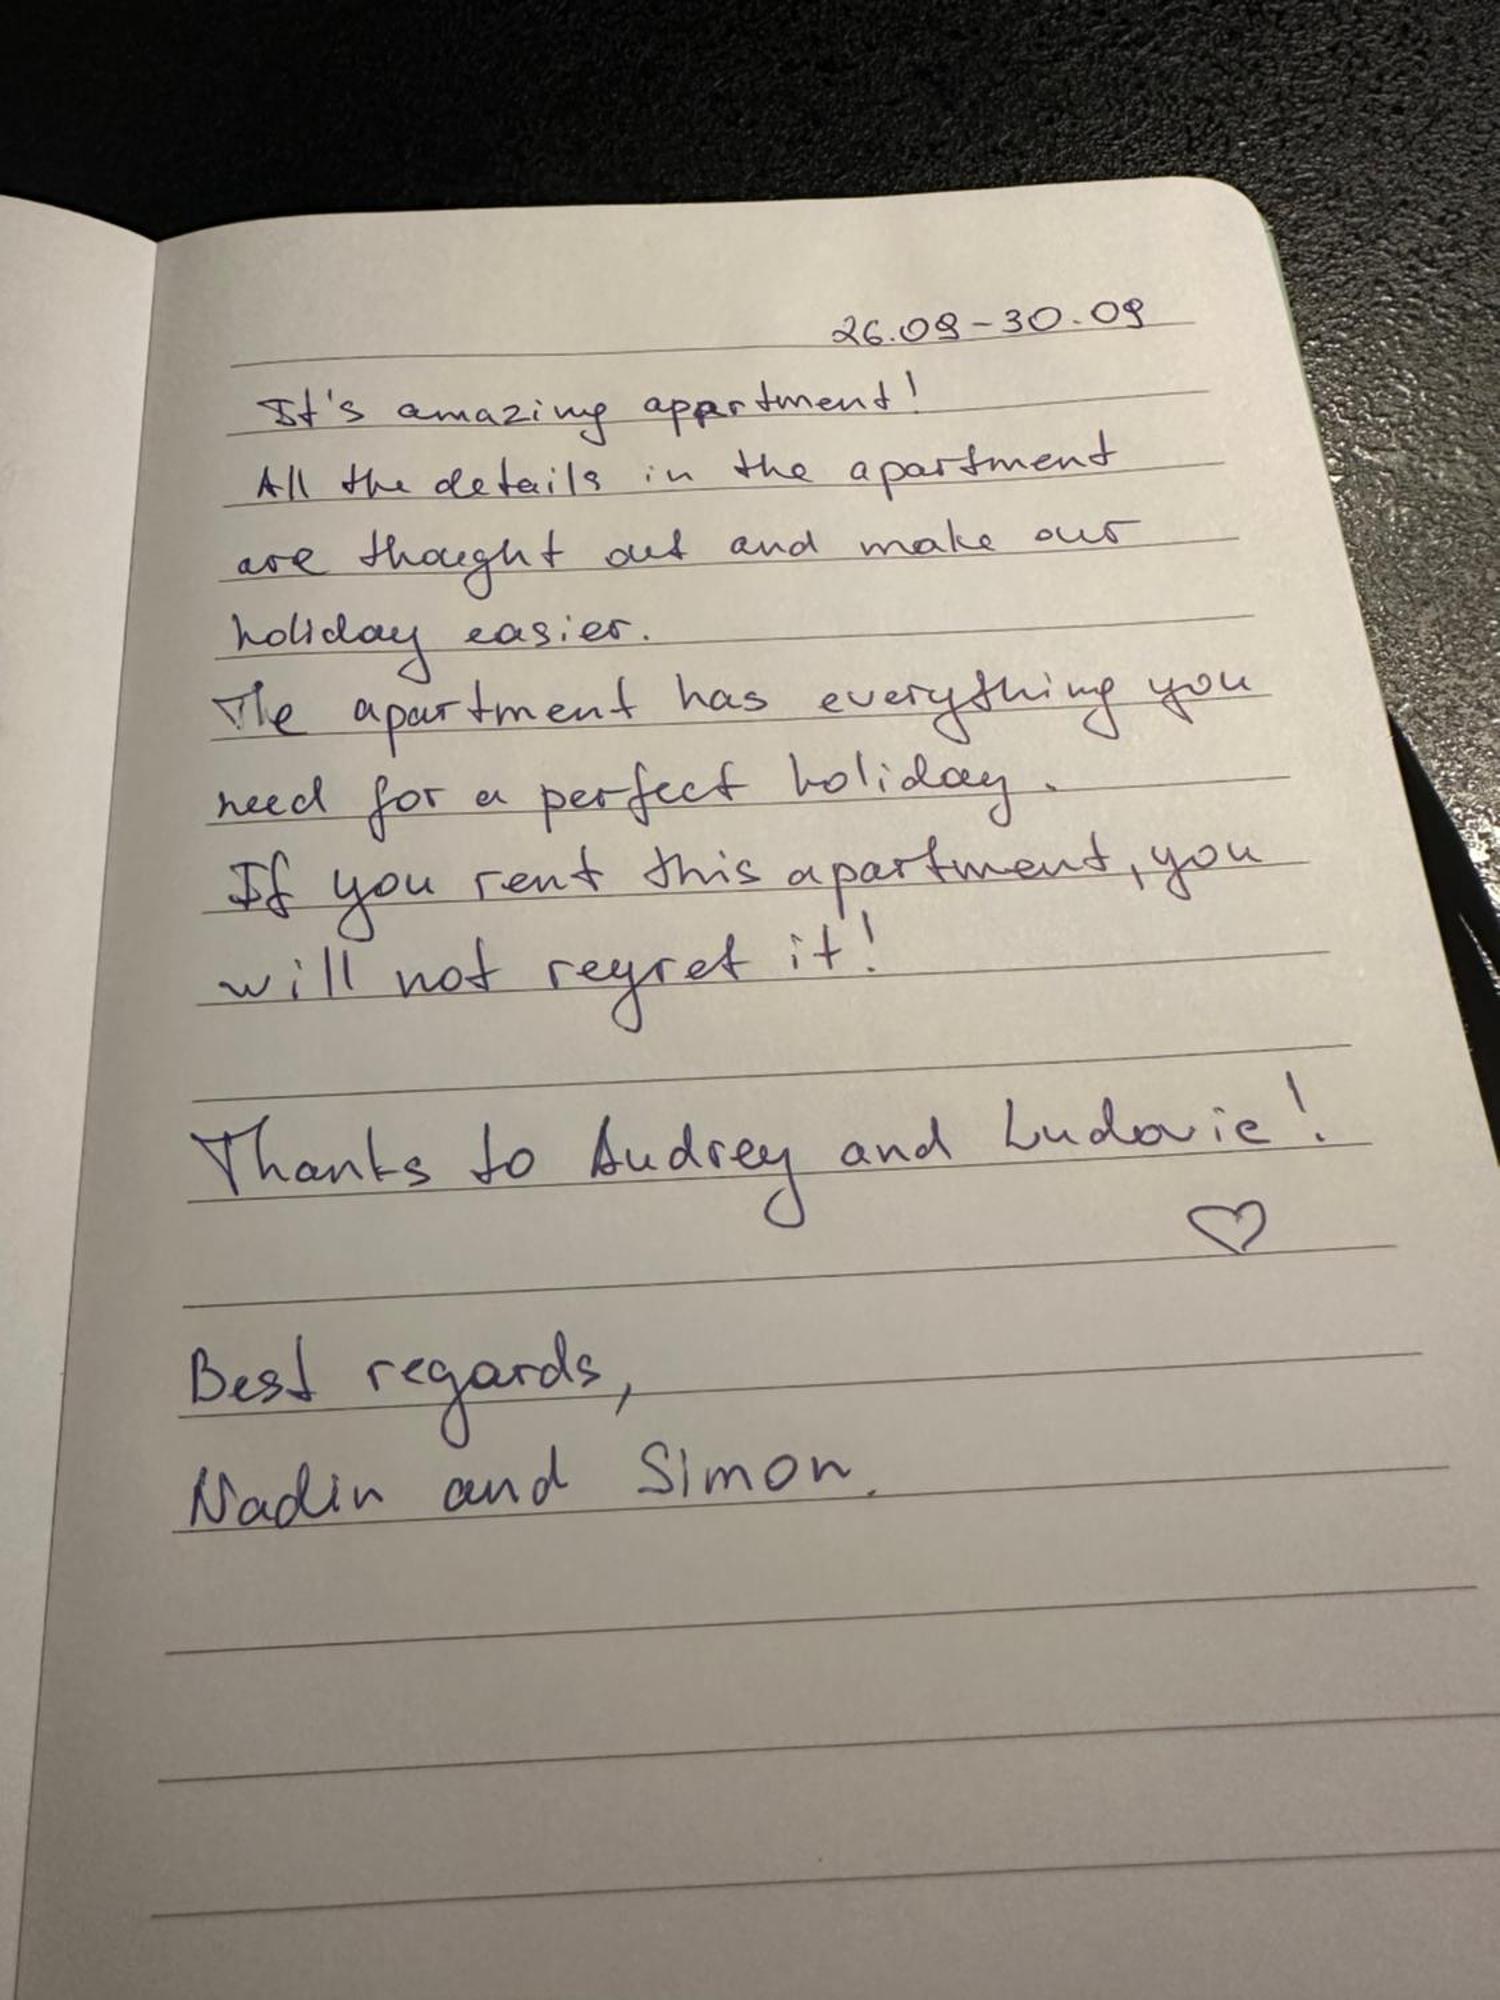 26.09-30.09
It's amazing apartment!
All the details in the apartment
are thought out and make our
holiday easier.
The apartment has everything you
need for a perfect holiday.
If you rent this apartment, you
will not regret it!
Thanks to Audrey and Ludovic!
♡
Best regards,
Nadin and Simon.